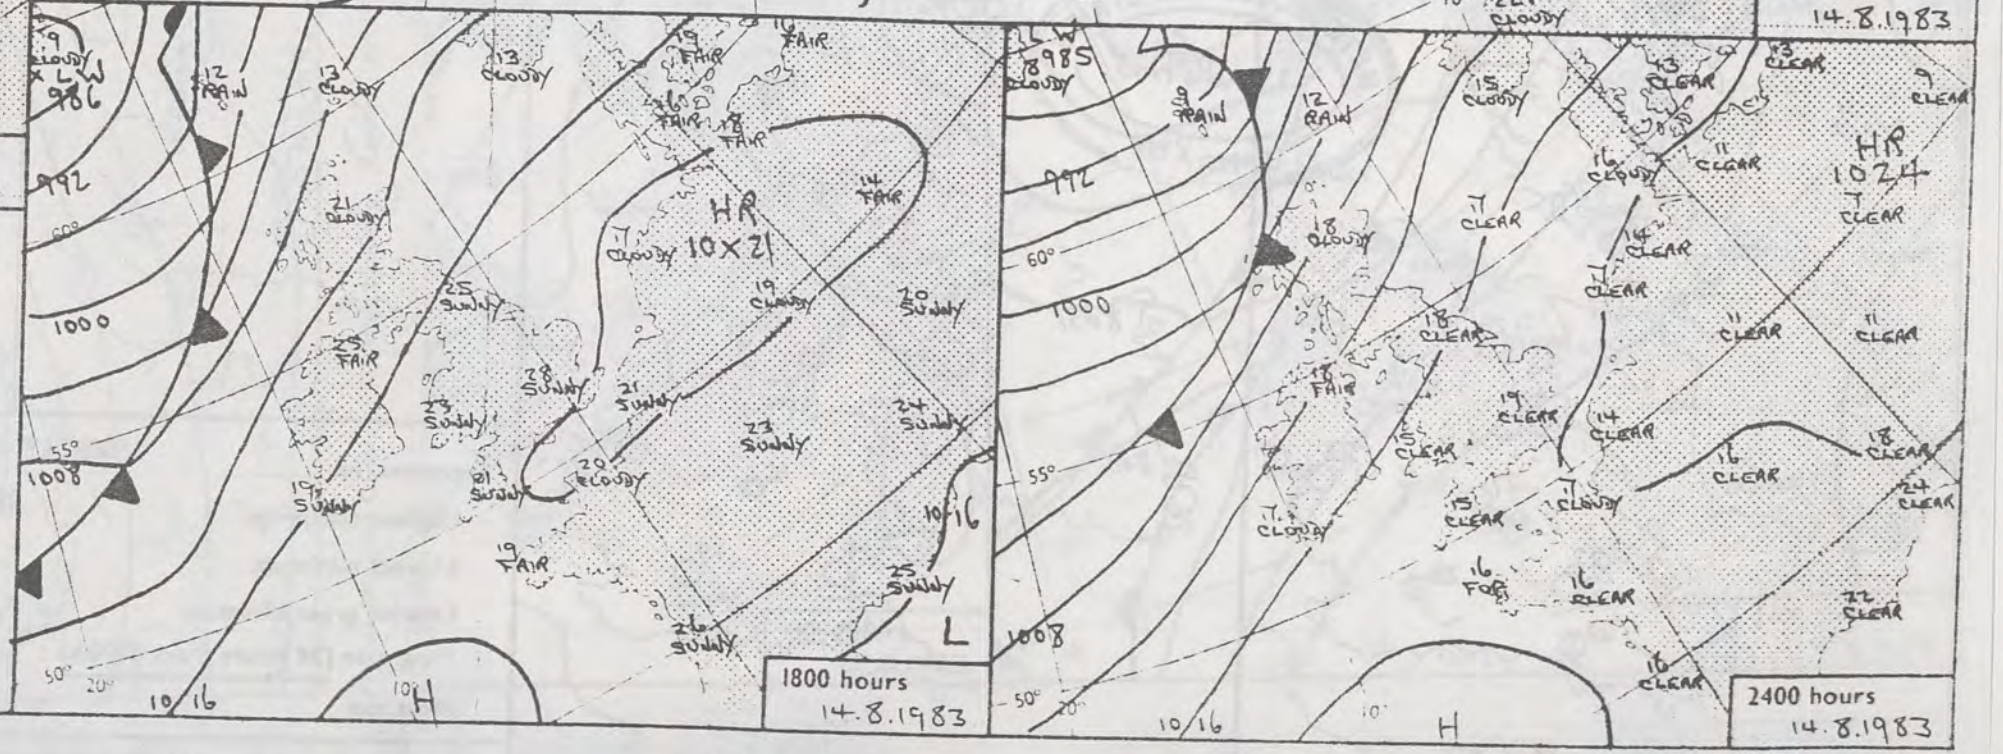 CLOUDY
14.8.1983
9
CLOUDY
x L W
986
12
RAIN
13
CLOUDY
13
CLOUDY
19
FAIR
16
FAIR
16
FAIR
18
FAIR
992
60°
21
CLOUDY
17
CLOUDY
HR
10X21
14
FAIR
1000
25
SUNNY
19
CLOUDY
20
SUNNY
25
FAIR
28
SUNNY
21
SUNNY
23
SUNNY
23
SUNNY
24
SUNNY
55°
1008
19
SUNNY
21
SUNNY
20
CLOUDY
10 16
19
FAIR
25
SUNNY
26
SUNNY
L
50°
20°
10 16
10°
H
1800 hours
14.8.1983
L W
985
8
CLOUDY
9
RAIN
12
RAIN
15
CLOUDY
13
CLEAR
13
CLEAR
9
CLEAR
992
16
CLOUDY
11
CLEAR
HR
1024
7
CLEAR
60°
18
CLOUDY
17
CLEAR
14
CLEAR
17
CLEAR
1000
18
CLEAR
11
CLEAR
11
CLEAR
18
FAIR
19
CLEAR
14
CLEAR
15
CLEAR
16
CLEAR
18
CLEAR
55°
17
CLOUDY
15
CLEAR
17
CLOUDY
24
CLEAR
16
FOG
16
CLEAR
22
CLEAR
1008
16
CLEAR
50°
20°
10 16
10°
H
2400 hours
14.8.1983